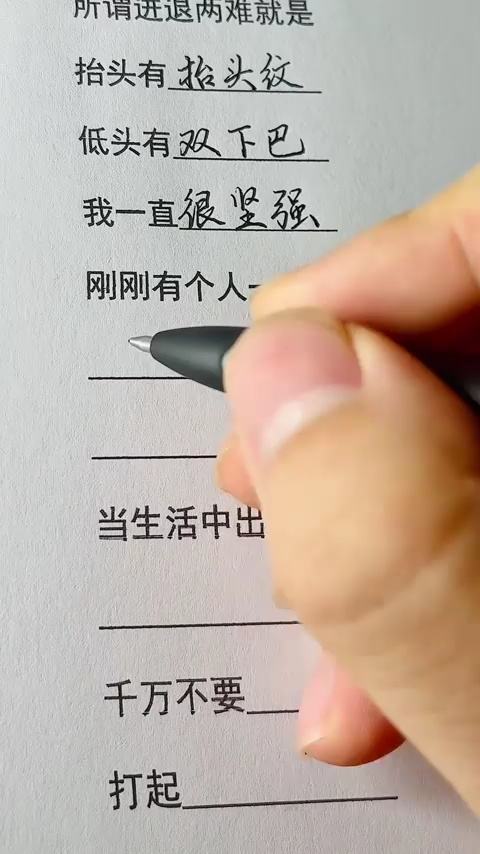 所谓进退两难就是
抬头有抬头纹
低头有双下巴
我一直很坚强
刚刚有个人一
当生活中出
千万不要
打起